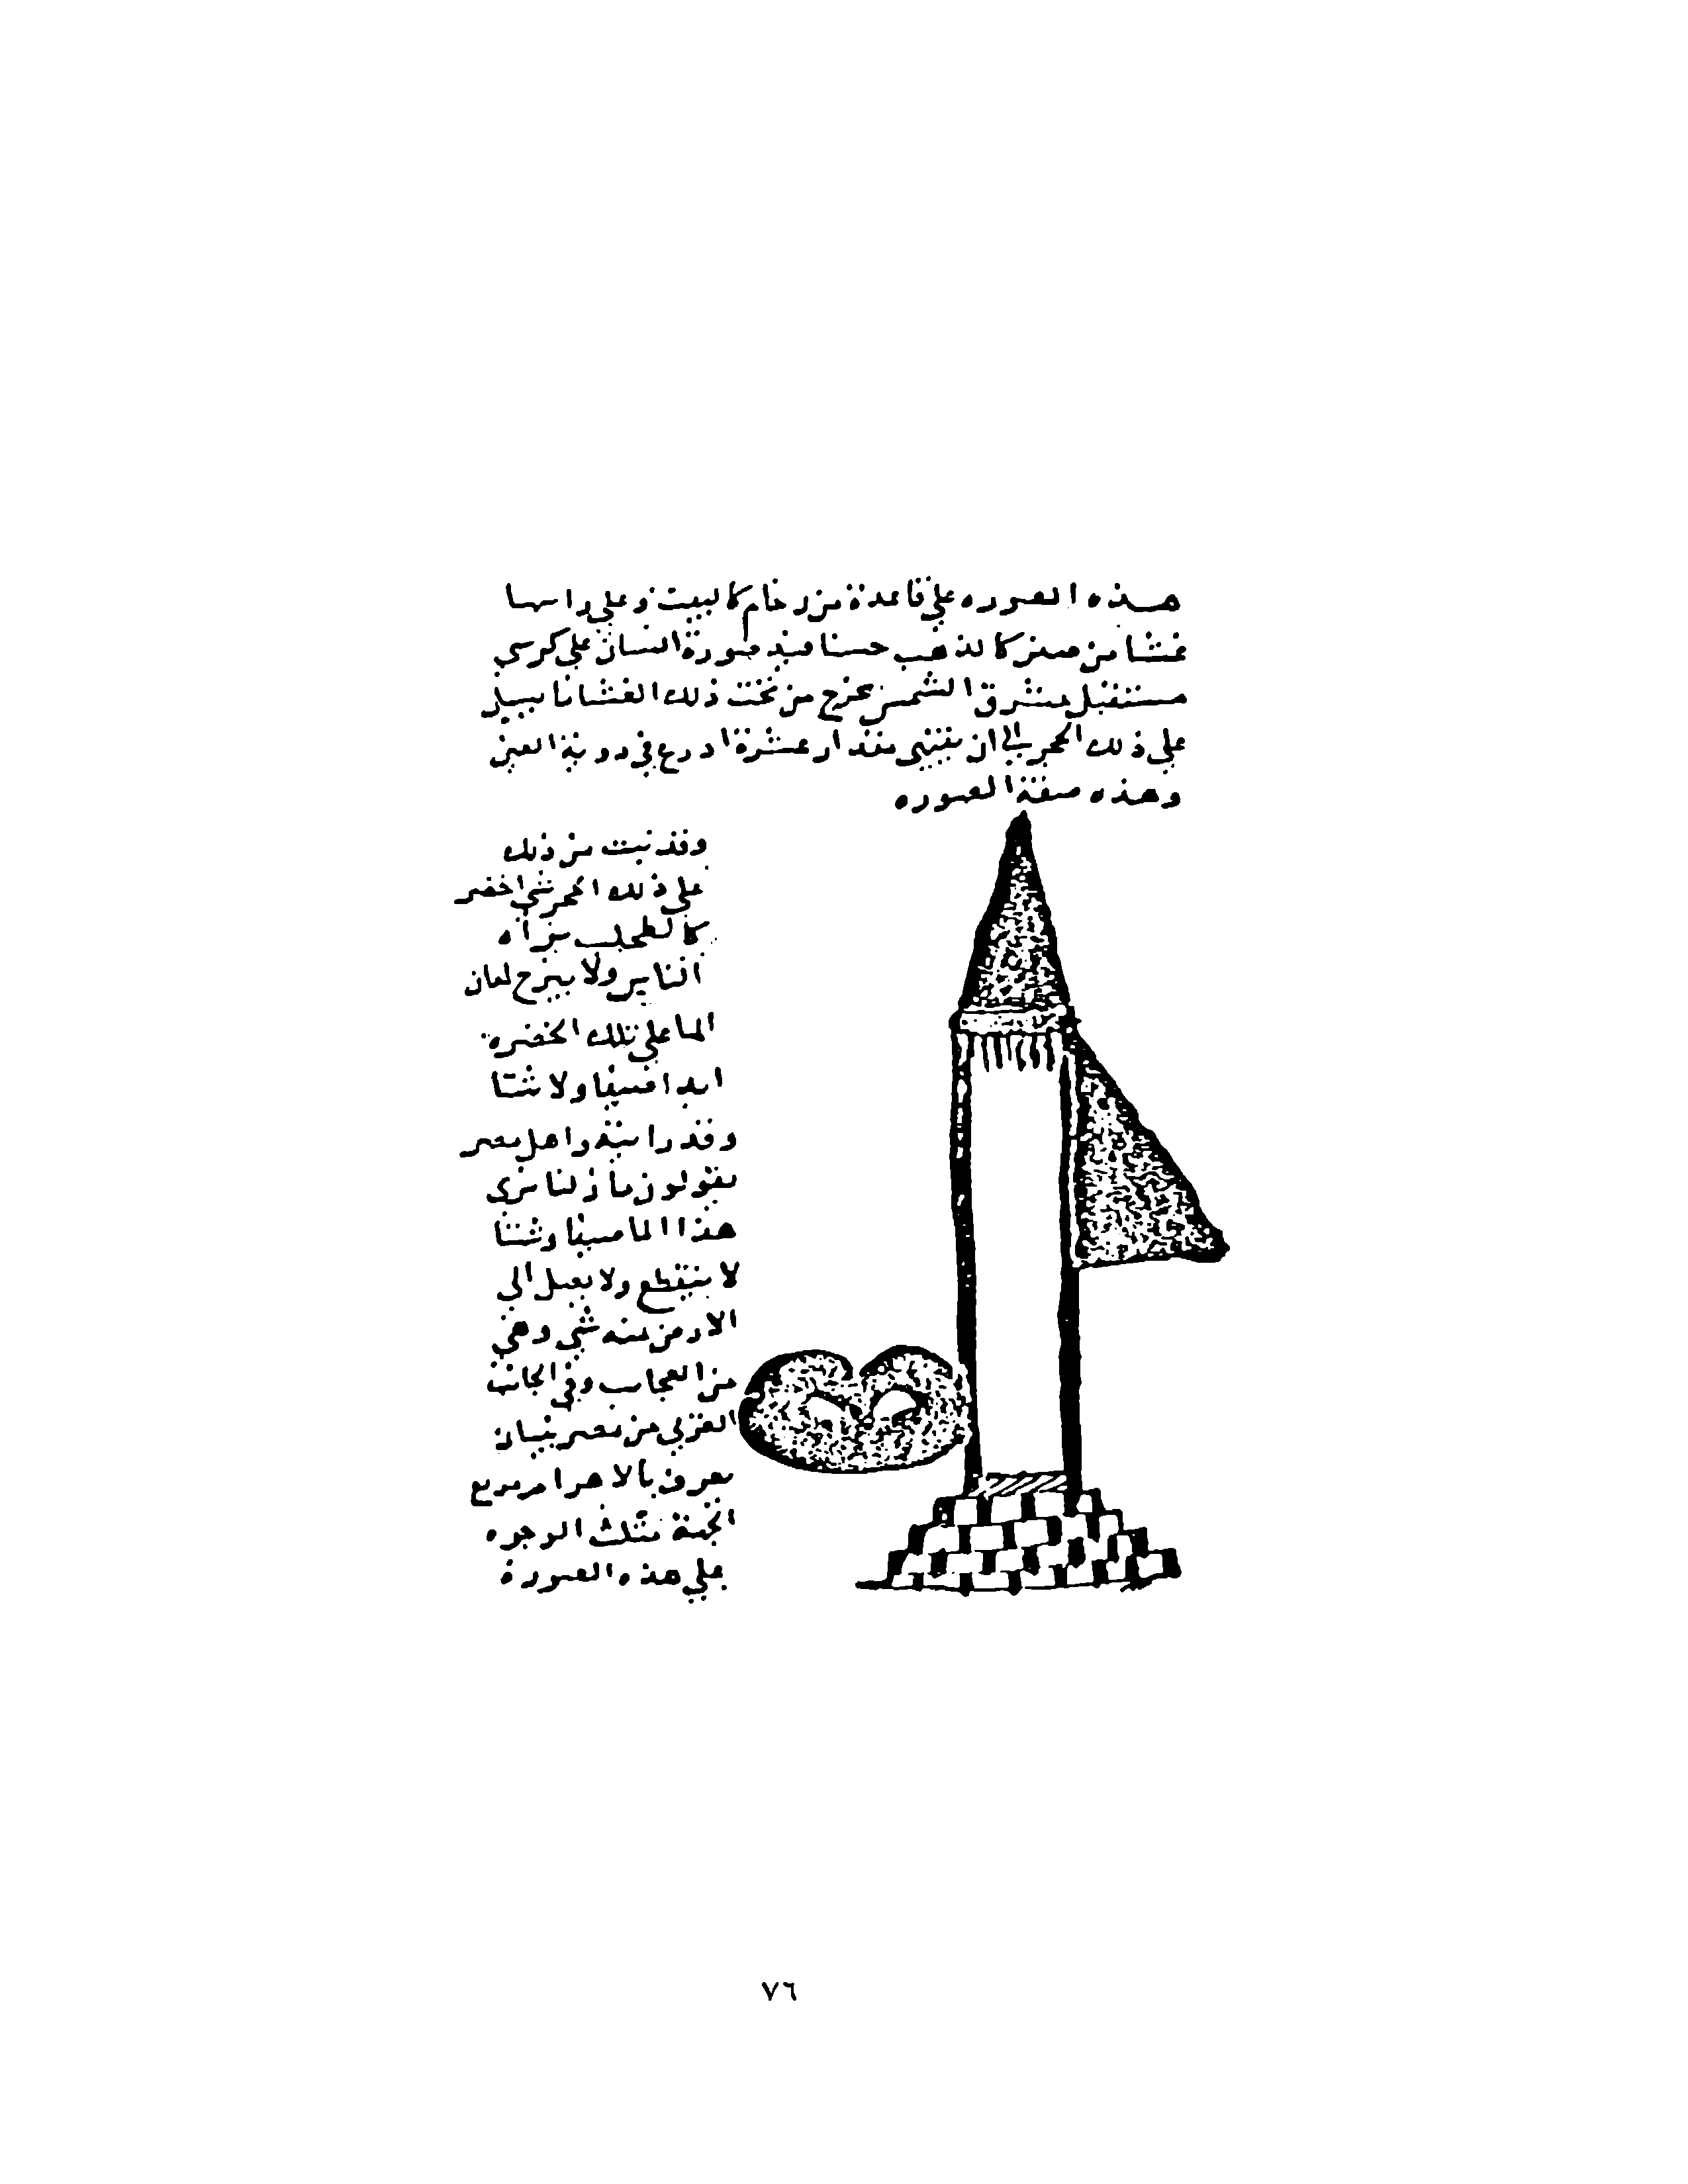 هذه الصوره علي قاعدة من رخام كالبيت وعلي راسها
غشا من صفر كالذهب حسنا فيه صورة انسان علي كرسي
مستقبل مشرق الشمس يخرج من تحت ذلك الغشا ما يسيل
علي ذلك الحجر الي ان ينتهي مقدار عشرة اذرع في روية العين
وهذه صفة الصوره
وقد نبت من ذلك
علي ذلك الحجر شي اخضر
كالطحلب يراه
الناس ولا يبرح لمعان
الما علي تلك الخضرة
ابدا صيفا ولا شتا
وقد رايته واهل مصر
يقولون ما زلنا نري
هذا الما صيفا وشتا
لا ينقطع ولا يصل الي
الارض منه شي وهي
من العجايب وفي الجانب
الغربي من مصر بنيان
يعرف بالاهرام مربع
الجثة مثلث الوجوه
علي هذه الصورة
٧٦